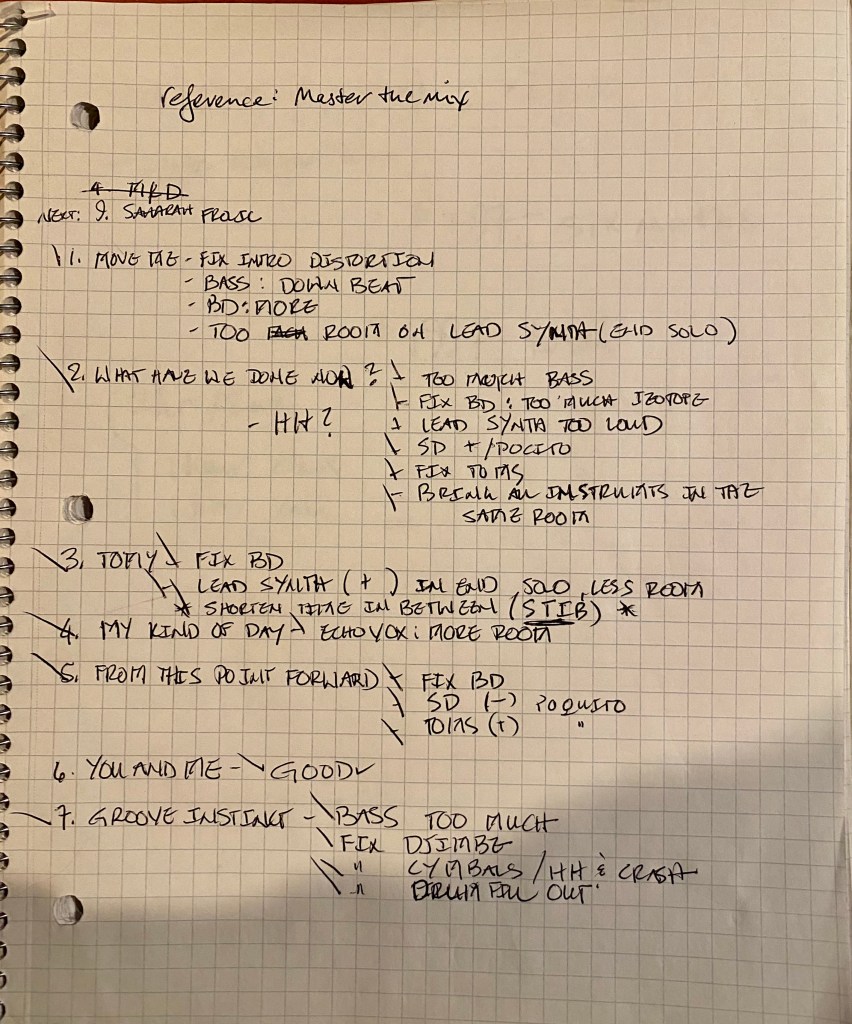 reference: Master the mix
NEXT: 9. FRASE
1. MOVE ME - FIX INTRO DISTORTION
- BASS: DOWN BEAT
- BD: MORE
- TOO ROOM ON LEAD SYNTH (END SOLO)
2. WHAT HAVE WE DONE NOW? - TOO MUCH BASS
- FIX BD: TOO MUCH IZOTOPE
- HH? + LEAD SYNTH TOO LOUD
- SD + /POCITO
- FIX TOMS
- BRING ALL INSTRUMTS IN THE
SAME ROOM
3. TOMY - FIX BD
- LEAD SYNTH (+) IN END SOLO, LESS ROOM
* SHORTEN TIME IN BETWEEN (STIB) *
4. MY KIND OF DAY - ECHOVOX: MORE ROOM
5. FROM THIS POINT FORWARD - FIX BD
- SD (-) POQUITO
- TOMS (+) "
6. YOU AND ME - GOOD✓
7. GROOVE INSTINCT - BASS TOO MUCH
FIX DJIMBE
" CYMBALS / HH & CRASH
" FILL OUT